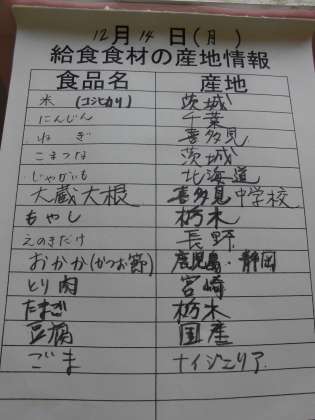 12月14日(月)
給食食材の産地情報
食品名 産地
米 (コシヒカリ) 茨城
にんじん 千葉
ねぎ 喜多見
こまつな 茨城
じゃがいも 北海道
大蔵大根 喜多見中学校
もやし 栃木
えのきだけ 長野
おかか(かつお節) 鹿児島・静岡
とり肉 宮崎
たまご 栃木
豆腐 国産
ごま ナイジェリア